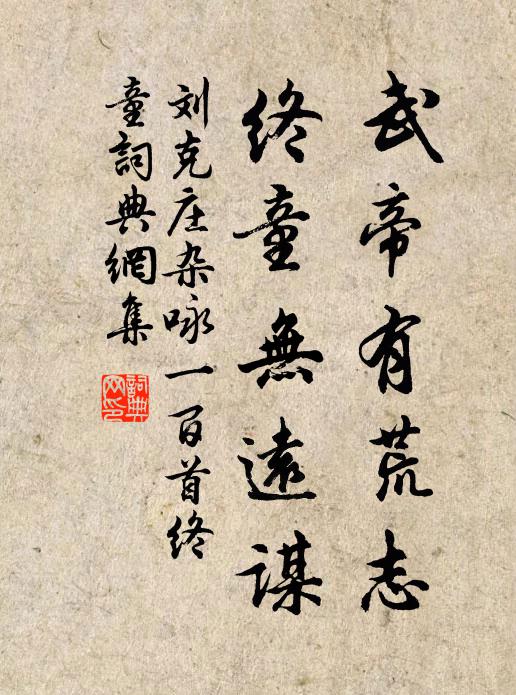 武帝有荒志
終童無遠謀
刘克庄杂咏一百首终
童詞典網集
詞典
网印